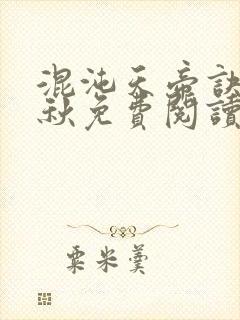 混沌天帝訣
秋免費閱讀
粟米羹